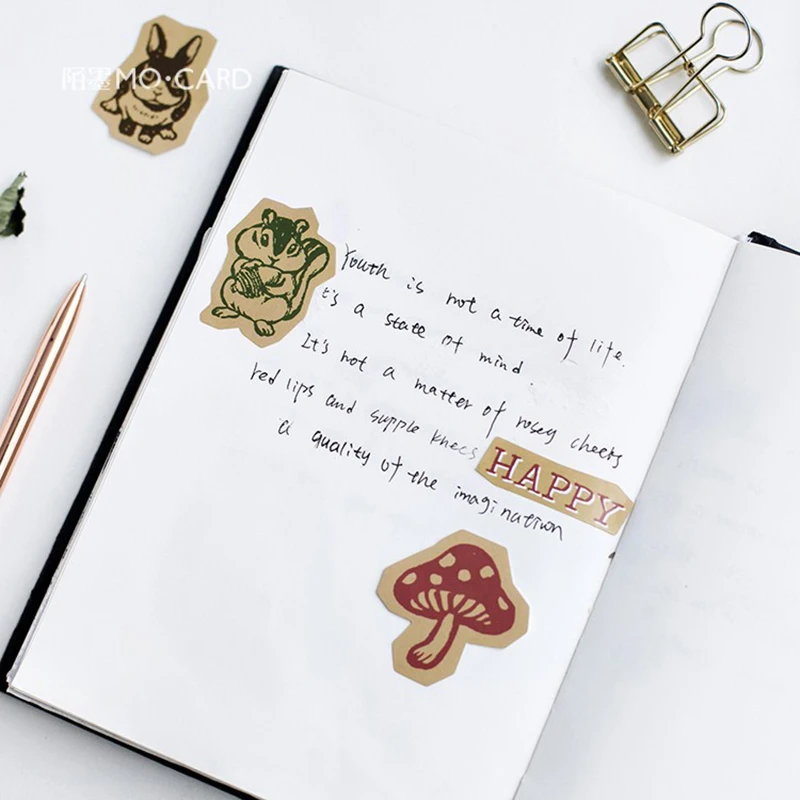 陌墨MO·CARD
Youth is not a time of life.
t's a state of mind.
It's not a matter of rosey cheeks
red lips and supple knees
HAPPY
a quality of the imagination